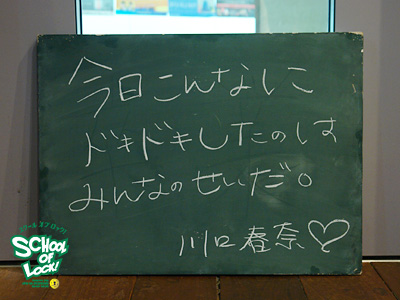 今日こんなに
ドキドキしたのは
みんなのせいだ。
川口春奈♡
スクールオブロック!
SCHOOL
OF
LOCK!